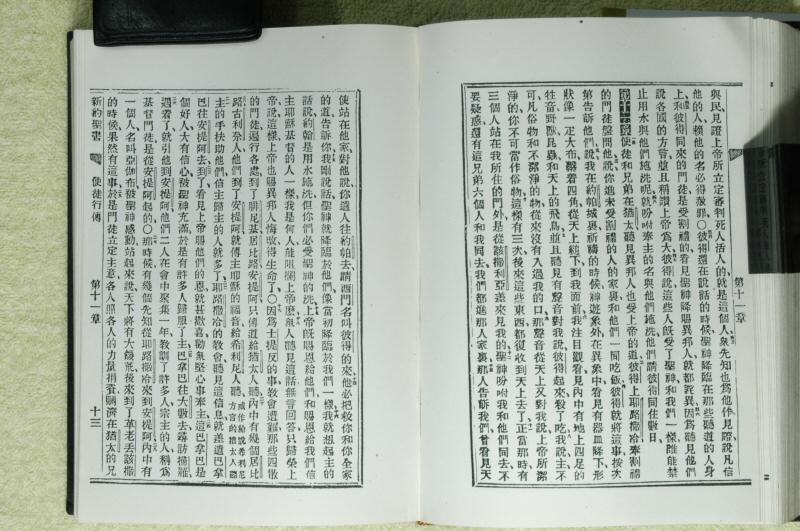 第十一章
與民見證上帝所立定審判死人活人的就是這個人衆先知也爲他作見證說凡信
他的人賴他的名必得赦罪○彼得還在說話的時候聖神降臨在那些聽道的人身
上和彼得同來的門徒是受割禮的看見聖神降賜異邦人就都詫異因爲聽見他們
說各國的方言並且稱讚上帝爲大彼得說這些人旣受了聖神和我們一樣誰能禁
止用水與他們施洗呢就吩咐奉主的名與他們施洗他們請彼得同住數日
第十一章使徒和兄弟在猶太聽見異邦人也受上帝的道彼得上耶路撒冷奉割禮
的門徒盤問他說你進未受割禮的人的家裏和他們一同吃飯彼得就將這事按次
第告訴他們說我在約帕城裏祈禱的時候神遊象外在異象中看見有器皿降下形
狀像一疋大布繫着四角從天上縋下到我面前我注目觀看見內中有地上四足的
牲畜野獸昆蟲和天上的飛鳥並且聽見有聲音對我說彼得起來殺了吃我說主不
可凡俗物和不潔淨的物從來沒有入過我的口那聲音從天上又對我說上帝所潔
淨的你不可當作俗物這樣有三次後來這些東西都復收到天上去了正當那時有
三個人站在我所住的門外是從該撒利亞差來見我的聖神吩咐我和他們同去不
要疑惑還有這兄弟六個人和我同去我們都進那人家裏那人告訴我們曾看見天
使站在他家對他說你遣人往約帕去請西門名叫彼得的來他必把救你和你全家
的道告訴你我剛說話聖神就降臨於他們像當初降臨於我們一樣我就想起主的
話說約翰是用水施洗但你們必受聖神的洗上帝旣賜恩給他們和賜恩給我們信
主耶穌基督的人一樣我是何人能阻攔上帝麼衆人聽見這話無言回答只歸榮上
帝說這樣上帝也賜異邦人悔改得生命了○因爲士提反的事敎會遭難那些四散
的門徒遍行各處到了腓尼基居比路安提阿只傳道給猶太人聽內中有幾個居比
路古利奈人他們到了安提阿就傳主耶穌的福音給希利尼人聽或作給說希利尼方言的猶太人聽
主的手扶助他們信主歸主的人就多了耶路撒冷的敎會聽見這信息就差遣巴拿
巴往安提阿去到了看見上帝賜他們的恩就甚歡喜勸衆堅心事奉主這巴拿巴是
個好人大有信心被聖神充滿於是有許多人歸服了主巴拿巴往大數去尋訪掃羅
遇着了就引他到安提阿他們二人在會中聚集一年敎訓了許多人宗主的人稱爲
基督門徒是從安提阿起的○那時候有幾個先知從耶路撒冷來到安提阿內中有
一個人名叫亞伽布被聖神感動站起來說天下將有大饑荒後來到了革老丟該撒
的時候果然有這事於是門徒立定主意各人照各人的力量捐資賙濟在猶太的兄
新約聖書 使徒行傳 第十一章 十三